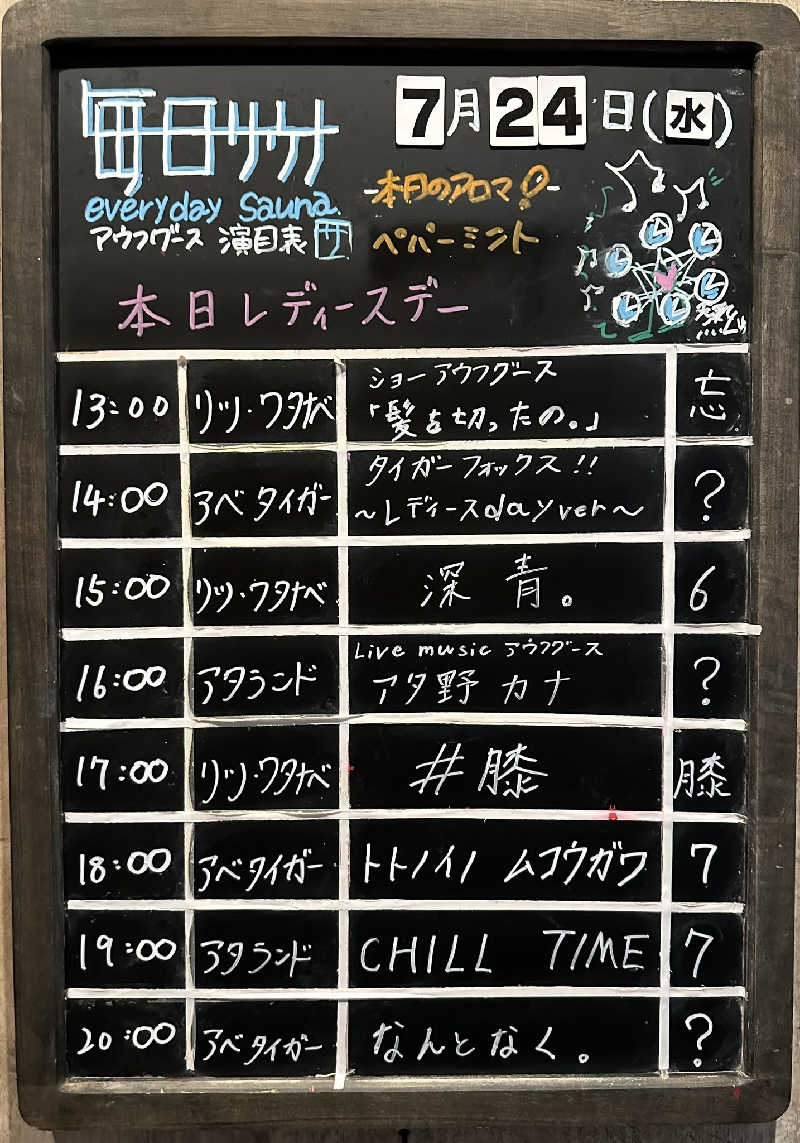 毎日サウナ
7月24日(水)
everyday Sauna.
アウフグース 演目表 サ
-本日のアロマ!-
ペパーミント
本日レディースデー
13:00 リッツ・ワタナベ ショーアウフグース 「髪を切ったの。」 忘
14:00 アベタイガー タイガーフォックス!! ~レディースdayver~ ?
15:00 リッツ・ワタナベ 深青。 6
16:00 アタランド Live music アウフグース アタ野カナ ?
17:00 リッツ・ワタナベ #膝 膝
18:00 アベタイガー トトノイノ ムコウガワ 7
19:00 アタランド CHILL TIME 7
20:00 アベタイガー なんとなく。 ?